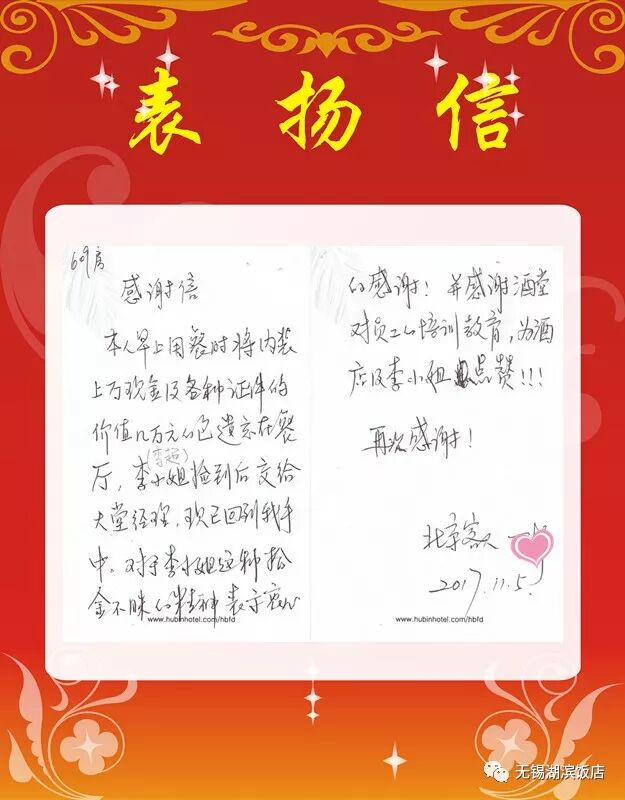 表扬信
609房
感谢信
本人早上用餐时将内装
上万现金及各种证件的
价值几万元的包遗忘在餐
厅，李小姐捡到后交给
大堂经理，现已回到我手
中。对于李小姐这种拾
金不昧的精神表示衷心
www.hubinhotel.com/hbfd
的感谢！并感谢酒堂
对员工的培训教育，为酒
店及李小姐点赞!!!
再次感谢！
北京客人
2017.11.5
www.hubinhotel.com/hbfd
无锡湖滨饭店